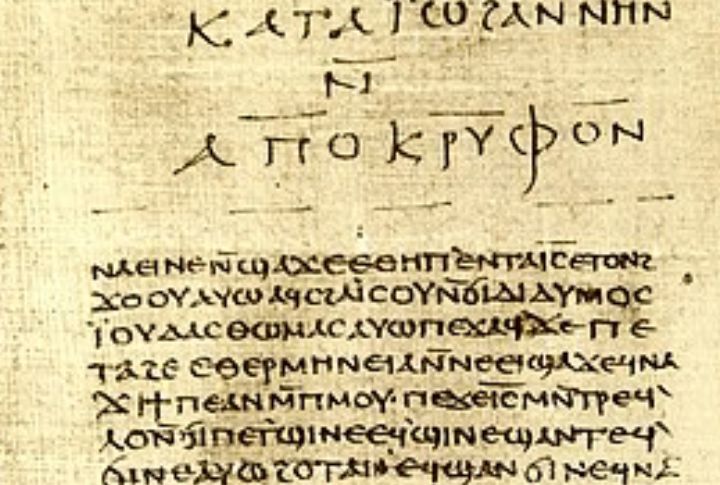 ⲕⲁⲧⲁ ⲓ̈ⲱϩⲁⲛⲛⲏⲛ
ⲛ̄
ⲁⲡⲟⲕⲣⲩⲫⲟⲛ
ⲛⲁⲉⲓⲛⲉⲛ̄ϣⲁϫⲉⲉⲑⲏⲡ`ⲉⲛⲧⲁⲓ̅ⲥ̅ⲉⲧⲟⲛϩ
ϫⲟⲟⲩⲁⲩⲱⲁϥⲥϩⲁⲓ̈ⲥⲟⲩⲛ̄ϭⲓⲇⲓⲇⲩⲙⲟⲥ
ⲓ̈ⲟⲩⲇⲁⲥⲑⲱⲙⲁⲥⲁⲩⲱⲡⲉϫⲁϥ`ϫⲉⲡⲉ
ⲧⲁϩⲉⲉⲑⲉⲣⲙⲏⲛⲉⲓⲁⲛ̄ⲛⲉⲉⲓϣⲁϫⲉϥⲛⲁ
ϫⲓϯⲡⲉⲁⲛⲙ̄ⲡⲙⲟⲩ·ⲡⲉϫⲉⲓ̅ⲥ̅ⲙⲛ̄ⲧⲣⲉϥ`
ⲗⲟⲛ̄ϭⲓⲡⲉⲧϣⲓⲛⲉⲉϥϣⲓⲛⲉϣⲁⲛⲧⲉϥ`
ϭⲓⲛⲉⲁⲩⲱϩⲟⲧⲁⲛⲉϥϣⲁⲛϭⲓⲛⲉϥⲛⲁ